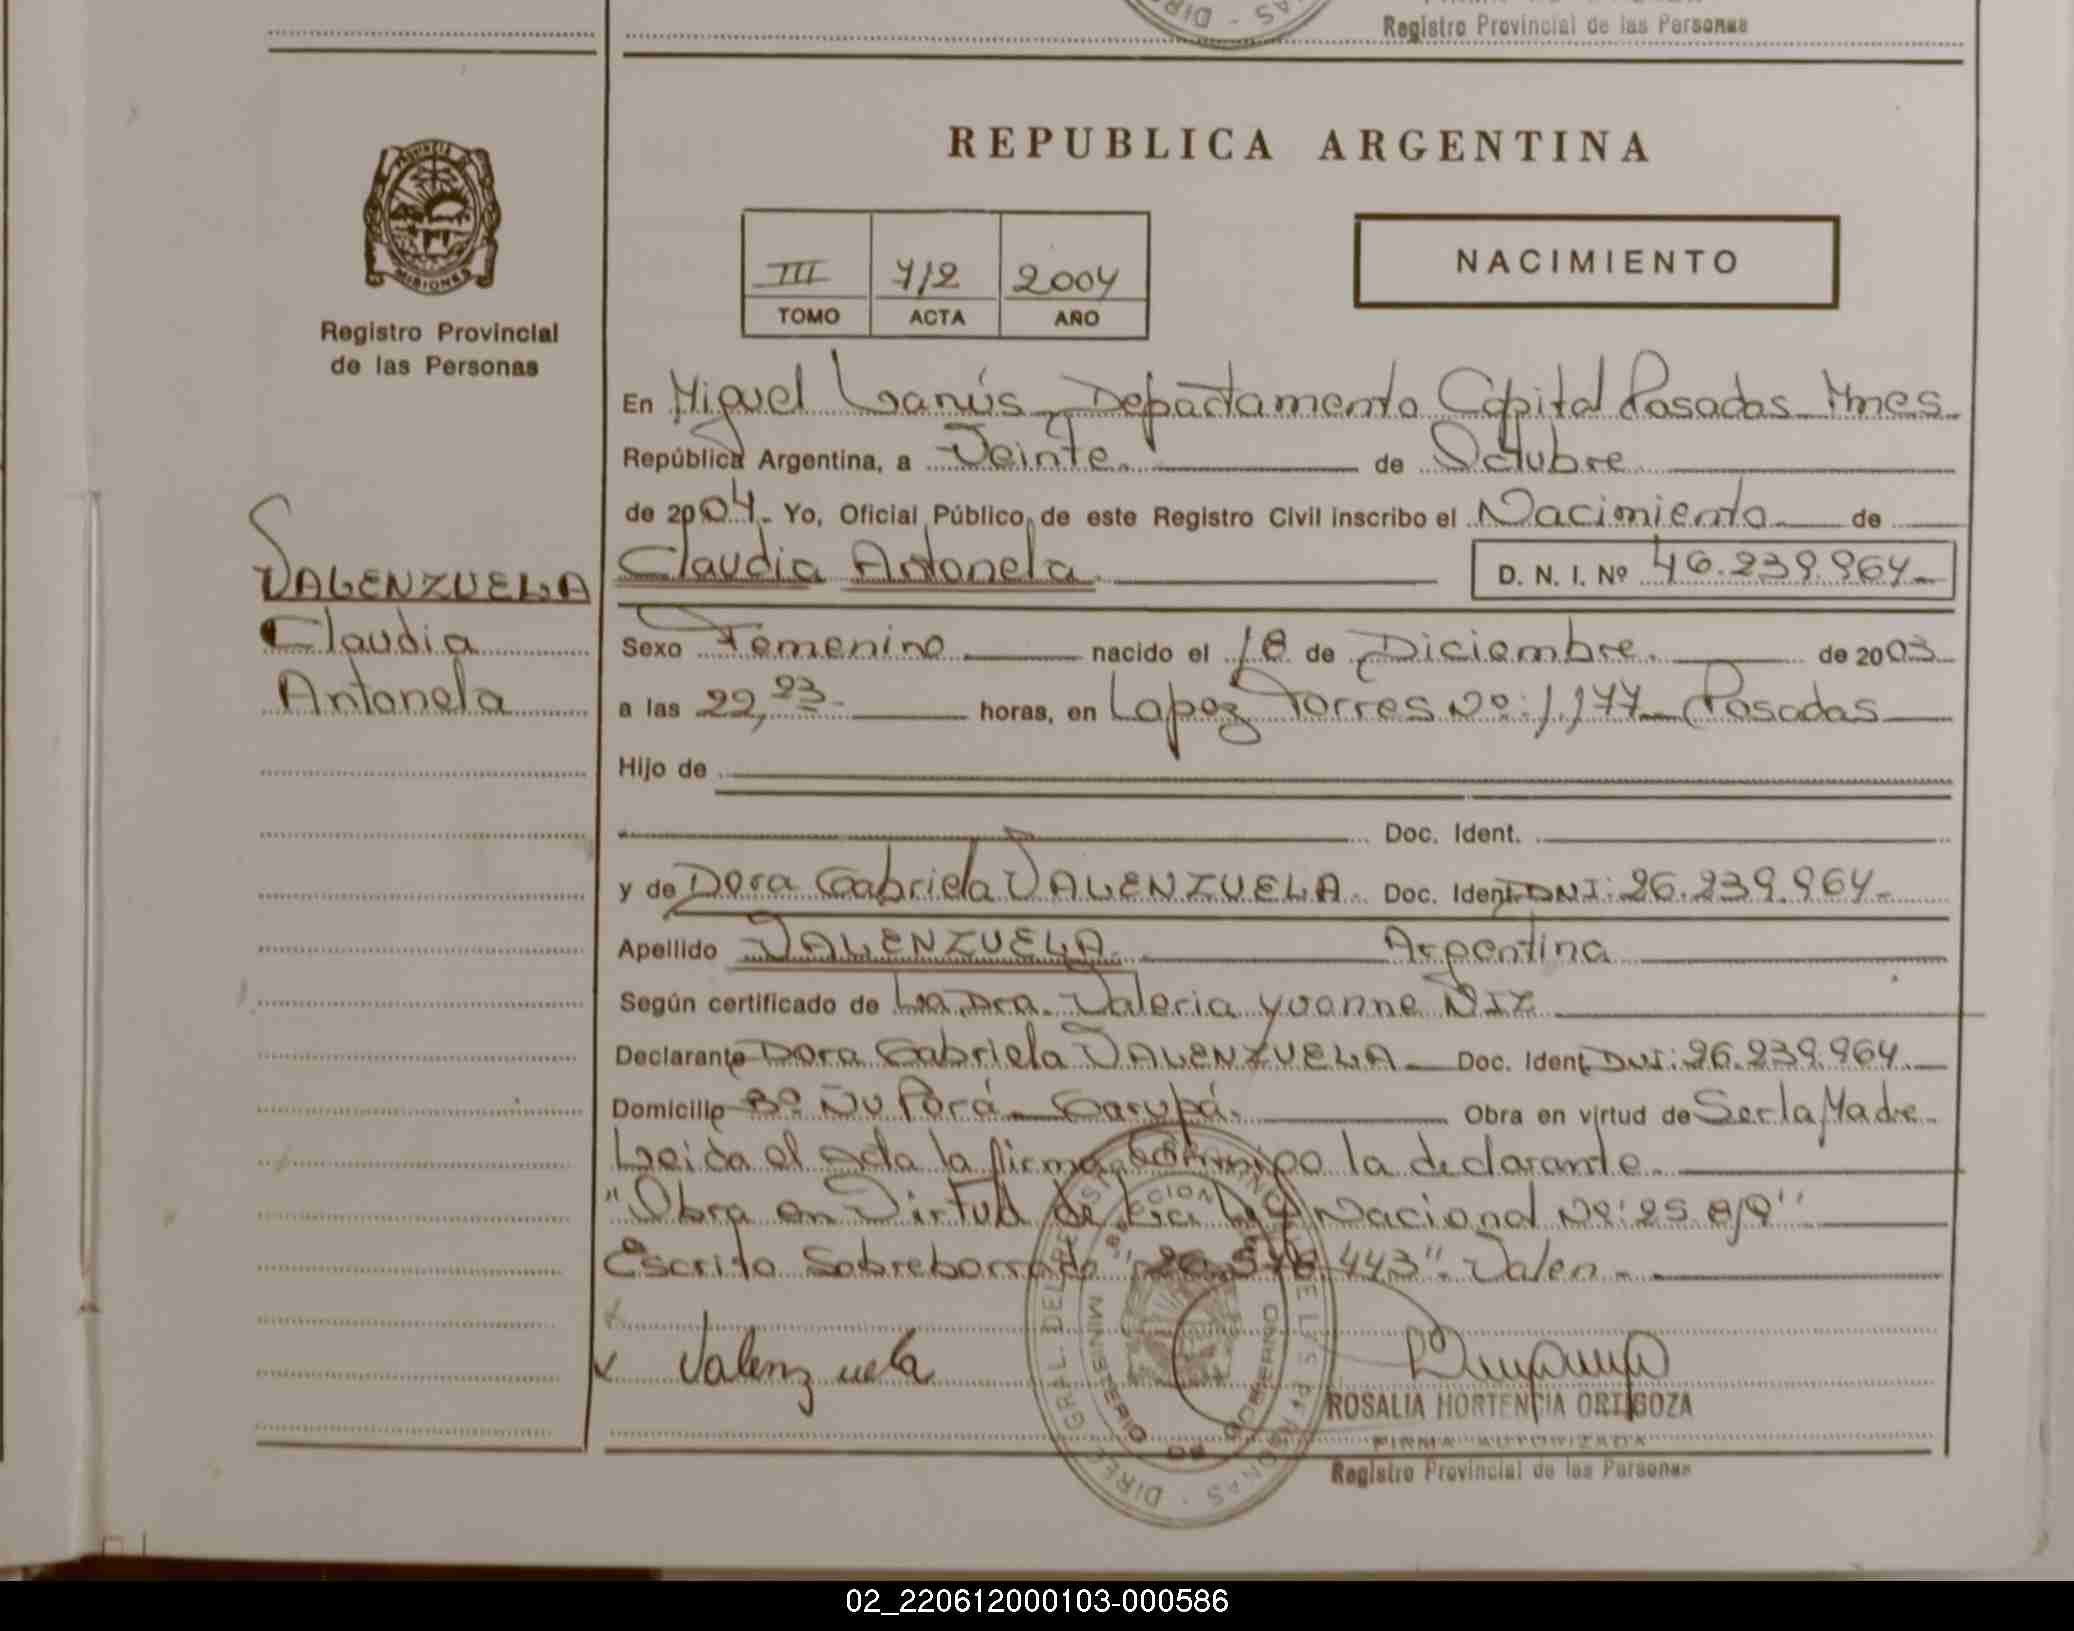 Registro Provincial de las Personas
PROVINCIA DE
MISIONES
Registro Provincial
de las Personas
REPUBLICA ARGENTINA
III 712 2004
TOMO ACTA AÑO
NACIMIENTO
En Miguel Lanús - Departamento Capital Posadas Mnes.
República Argentina, a Veinte. de Octubre
de 2004. Yo, Oficial Público, de este Registro Civil inscribo el Nacimiento de
Claudia Antonela D. N. I. Nº 46.239.964
VALENZUELA
Claudia
Antonela
Sexo Femenino nacido el 18 de Diciembre. de 2003
a las 22,23 horas, en Lopez Torres Nº: 1.177 - Posadas
Hijo de
Doc. Ident.
y de Dora Gabriela VALENZUELA. Doc. Ident. DNI: 26.239.964.
Apellido VALENZUELA. Argentina
Según certificado de La Dra. Valeria Yvonne NIZ
Declarante Dora Gabriela VALENZUELA Doc. Ident. DNI: 26.239.964.
Domicilio Bº Ñu Porá - Garupá. Obra en virtud de Ser la Madre.
Leida el Acta la firma conmigo la declarante.
"Obra en Virtud de la Ley Nacional Nº: 25.819"
Escrito Sobreborrado 443" Valen.
Valenzuela
ROSALIA HORTENCIA ORTIGOZA
FIRMA AUTORIZADA
Registro Provincial de las Personas
MINISTERIO DE GOBIERNO
02_220612000103-000586